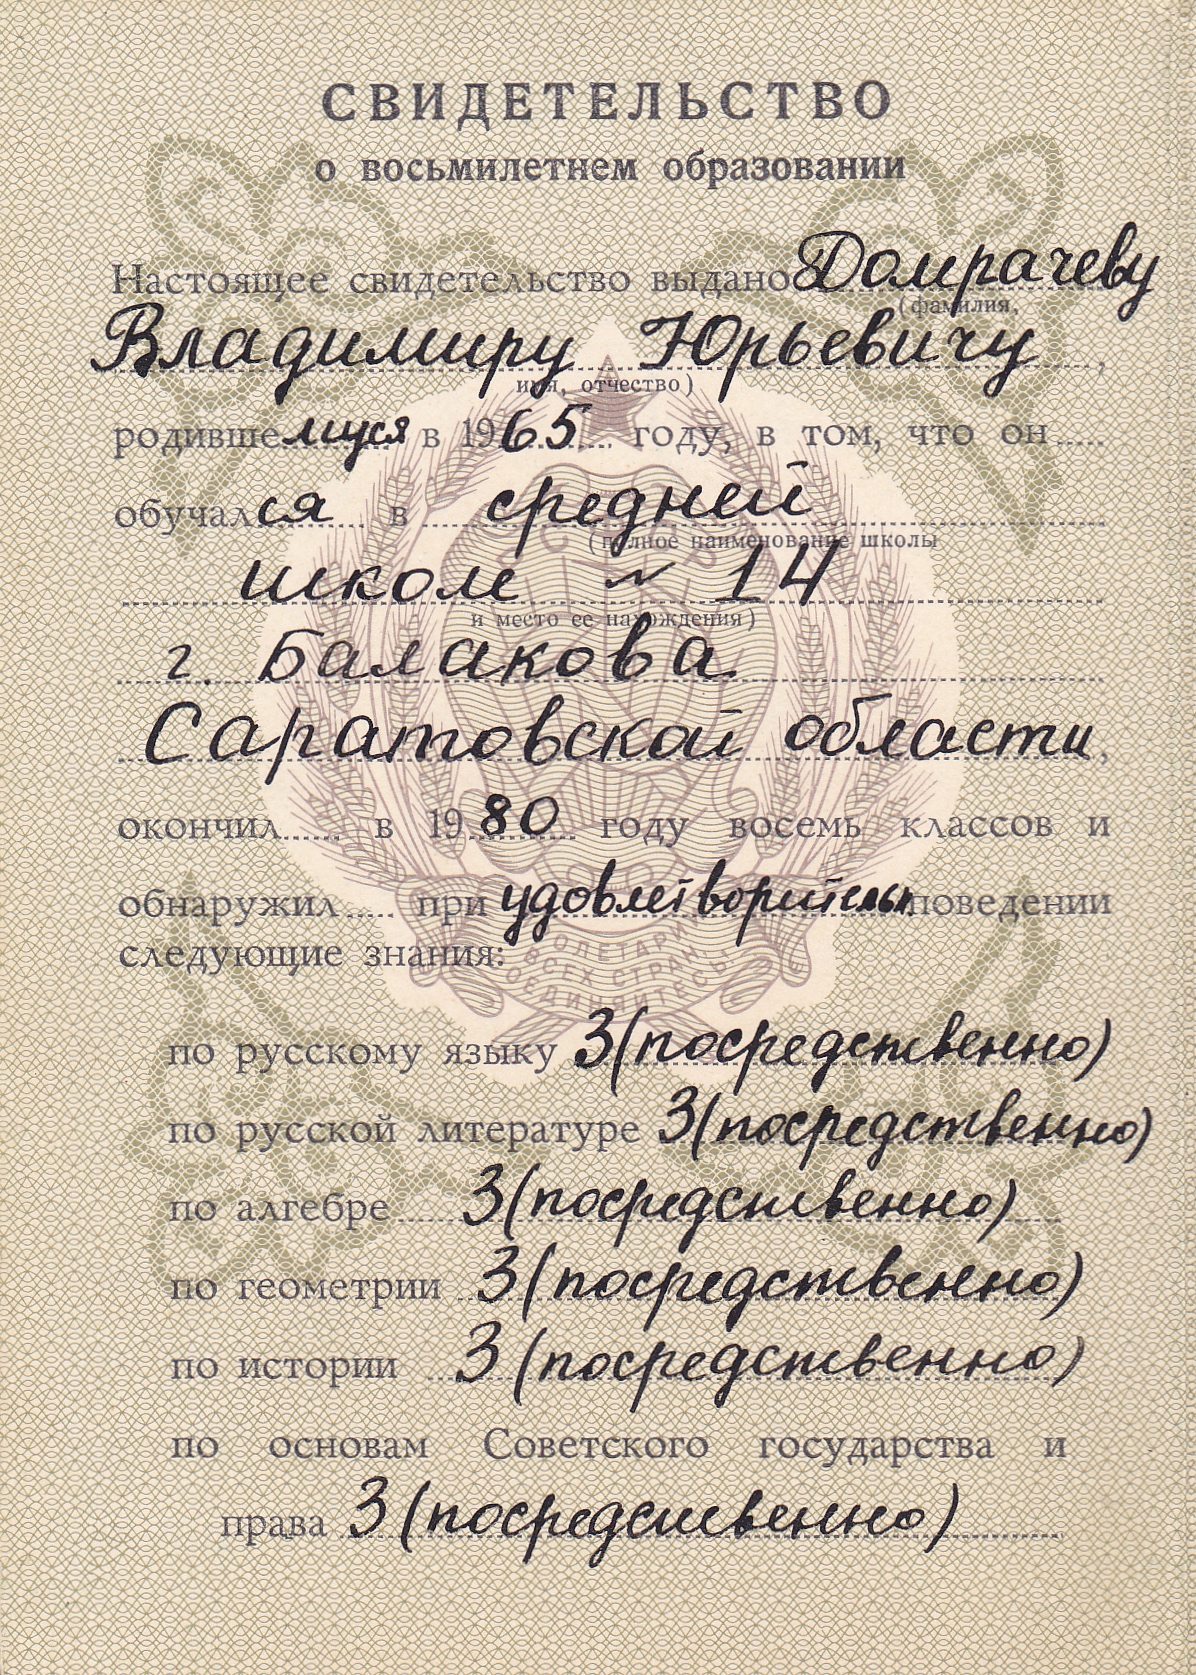 СВИДЕТЕЛЬСТВО
о восьмилетнем образовании
Настоящее свидетельство выдано Домрачеву
(фамилия,
Владимиру Юрьевичу,
имя, отчество)
родившемуся в 1965 году, в том, что он
обучался в средней
(полное наименование школы
школе № 14
и место ее нахождения)
г. Балакова
Саратовской области,
окончил в 1980 году восемь классов и
обнаружил при удовлетворительн. поведении
следующие знания:
по русскому языку 3 (посредственно)
по русской литературе 3 (посредственно)
по алгебре 3 (посредственно)
по геометрии 3 (посредственно)
по истории 3 (посредственно)
по основам Советского государства и
права 3 (посредственно)